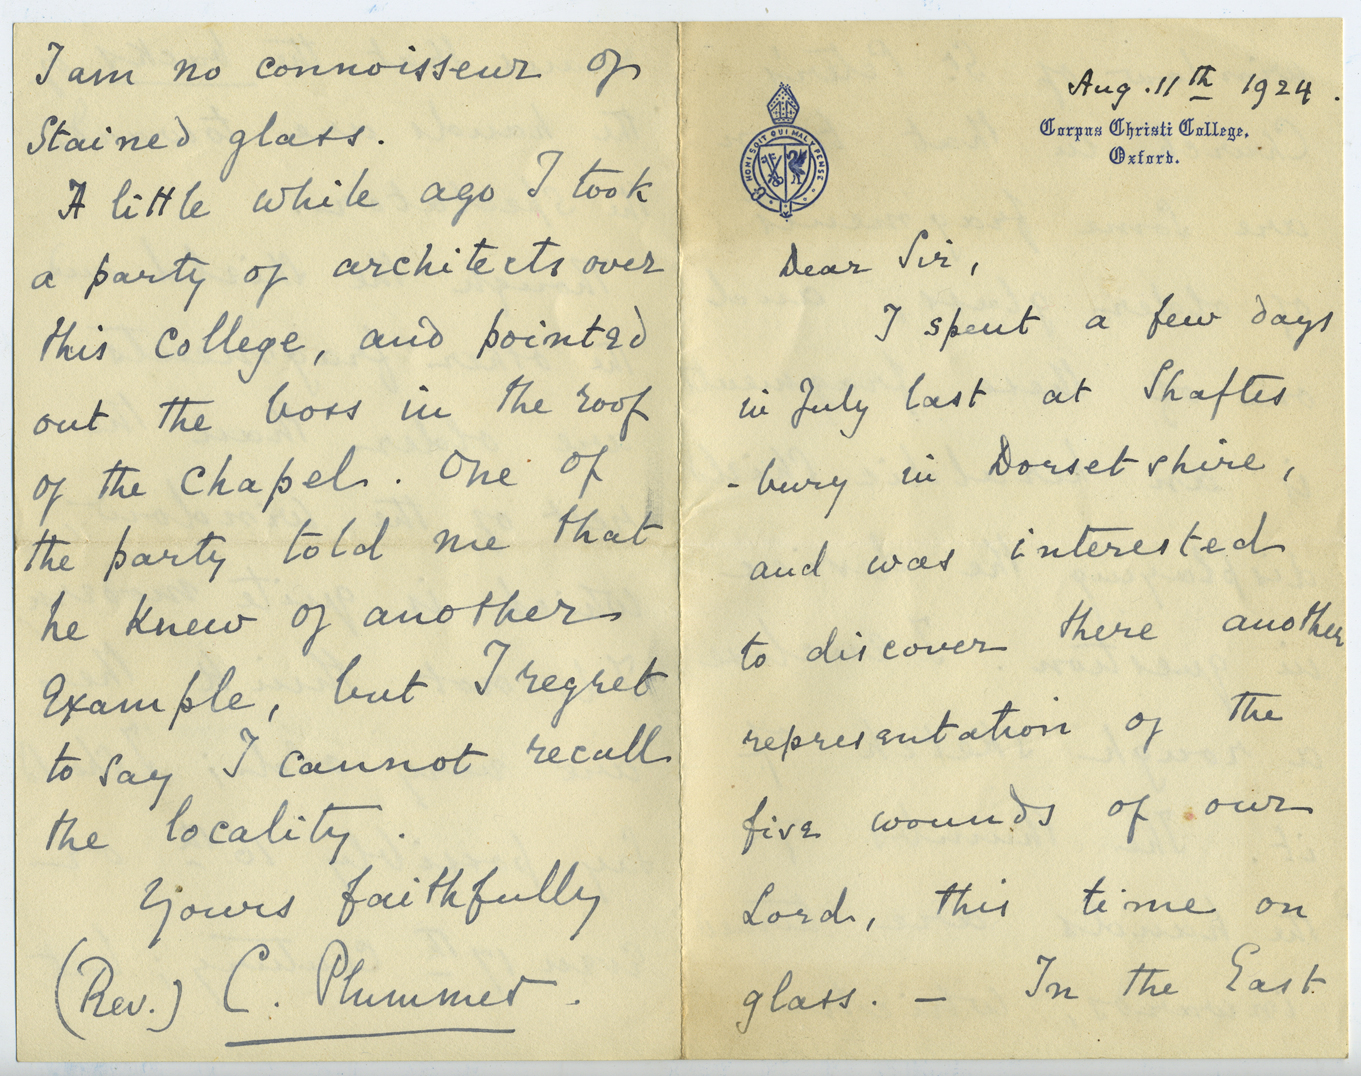 HONI SOIT QUI MAL Y PENSE
Aug. 11th 1924.
Corpus Christi College,
Oxford.
Dear Sir,
I spent a few days
in July last at Shaftes
-bury in Dorsetshire,
and was interested
to discover there another
representation of the
five wounds of our
Lord, this time on
glass. — In the East
I am no connoisseur of
Stained glass.
A little while ago I took
a party of architects over
this college, and pointed
out the boss in the roof
of the chapel. One of
the party told me that
he knew of another
Example, but I regret
to say I cannot recall
the locality.
Yours faithfully
(Rev.) C. Plummer.